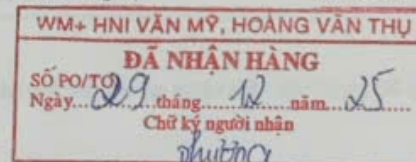 WM+ HNI VĂN MỸ, HOÀNG VĂN THỤ
ĐÃ NHẬN HÀNG
SỐ PO/TO
Ngày...29...tháng...12...năm...25...
Chữ ký người nhận
phương